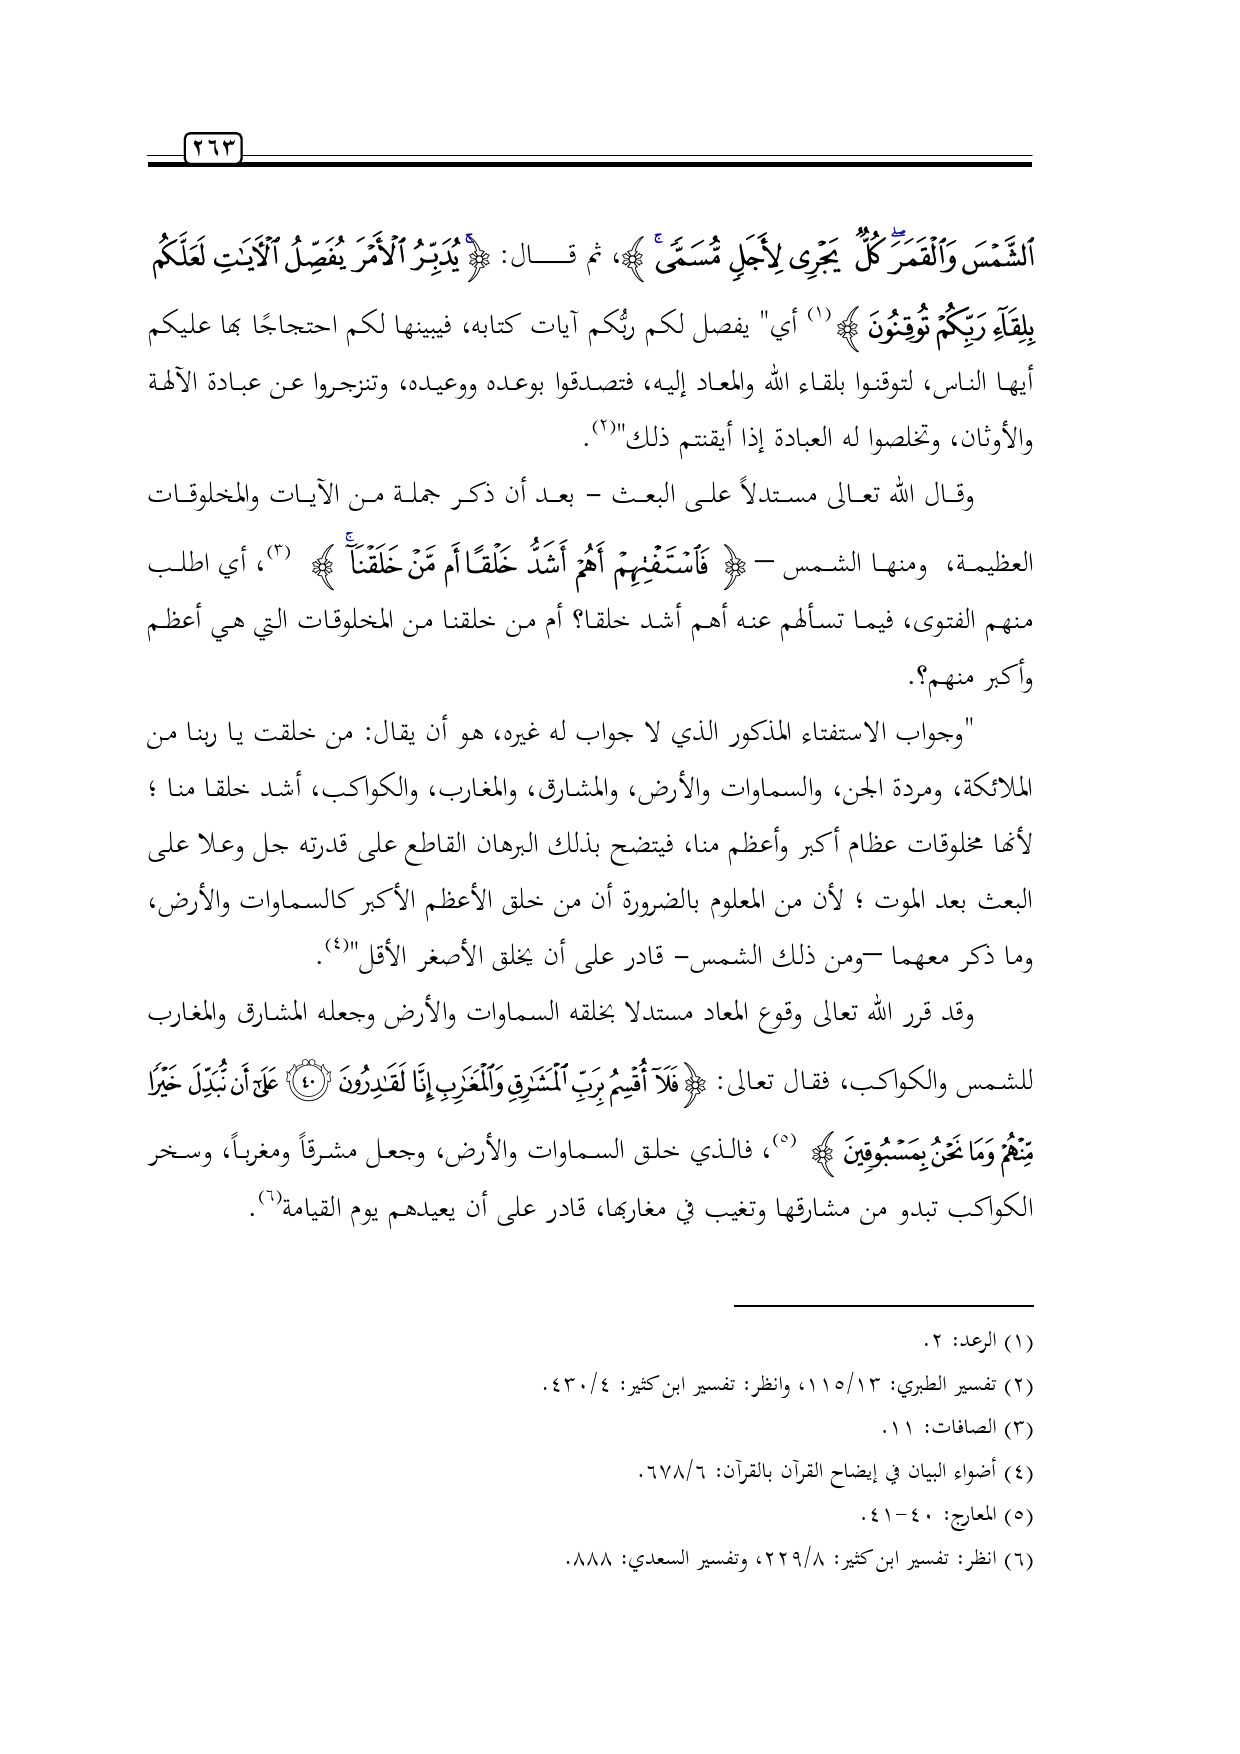 ٢٦٣
ٱلشَّمْسَ وَٱلْقَمَرَ ۖ كُلٌّ يَجْرِى لِأَجَلٍ مُّسَمًّى ۚ ﴾، ثم قـــــال: ﴿ ۚ يُدَبِّرُ ٱلْأَمْرَ يُفَصِّلُ ٱلْـَٔايَـٰتِ لَعَلَّكُم
بِلِقَآءِ رَبِّكُمْ تُوقِنُونَ ﴾(١) أي" يفصل لكم ربُّكم آيات كتابه، فيبينها لكم احتجاجًا بها عليكم
أيها الناس، لتوقنوا بلقاء الله والمعاد إليه، فتصدقوا بوعده ووعيده، وتنزجروا عن عبادة الآلهة
والأوثان، وتخلصوا له العبادة إذا أيقنتم ذلك"(٢).
وقال الله تعالى مستدلاً على البعث – بعد أن ذكر جملة من الآيات والمخلوقات
العظيمة، ومنها الشمس – ﴿ فَٱسْتَفْتِهِمْ أَهُمْ أَشَدُّ خَلْقًا أَم مَّنْ خَلَقْنَآ ۚ ﴾ (٣)، أي اطلب
منهم الفتوى، فيما تسألهم عنه أهم أشد خلقا؟ أم من خلقنا من المخلوقات التي هي أعظم
وأكبر منهم؟.
"وجواب الاستفتاء المذكور الذي لا جواب له غيره، هو أن يقال: من خلقت يا ربنا من
الملائكة، ومردة الجن، والسماوات والأرض، والمشارق، والمغارب، والكواكب، أشد خلقا منا ؛
لأنها مخلوقات عظام أكبر وأعظم منا، فيتضح بذلك البرهان القاطع على قدرته جل وعلا على
البعث بعد الموت ؛ لأن من المعلوم بالضرورة أن من خلق الأعظم الأكبر كالسماوات والأرض،
وما ذكر معهما –ومن ذلك الشمس– قادر على أن يخلق الأصغر الأقل"(٤).
وقد قرر الله تعالى وقوع المعاد مستدلا بخلقه السماوات والأرض وجعله المشارق والمغارب
للشمس والكواكب، فقال تعالى: ﴿ فَلَآ أُقْسِمُ بِرَبِّ ٱلْمَشَـٰرِقِ وَٱلْمَغَـٰرِبِ إِنَّا لَقَـٰدِرُونَ ٤٠ عَلَىٰٓ أَن نُّبَدِّلَ خَيْرًا
مِّنْهُمْ وَمَا نَحْنُ بِمَسْبُوقِينَ ﴾ (٥)، فالذي خلق السماوات والأرض، وجعل مشرقاً ومغرباً، وسخر
الكواكب تبدو من مشارقها وتغيب في مغاربها، قادر على أن يعيدهم يوم القيامة(٦).
(١) الرعد: ٢.
(٢) تفسير الطبري: ١١٥/١٣، وانظر: تفسير ابن كثير: ٤٣٠/٤.
(٣) الصافات: ١١.
(٤) أضواء البيان في إيضاح القرآن بالقرآن: ٦٧٨/٦.
(٥) المعارج: ٤٠-٤١.
(٦) انظر: تفسير ابن كثير: ٢٢٩/٨، وتفسير السعدي: ٨٨٨.